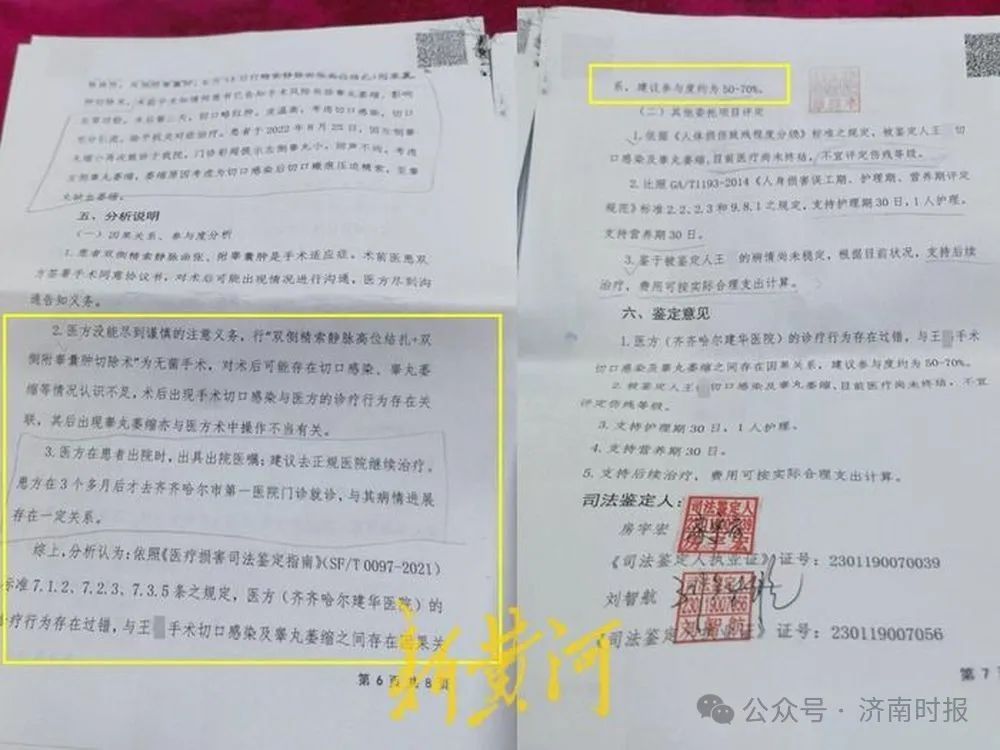 肿切除术，术前手术知情同意书已告知手术风险包括睾丸萎缩，影响
生育功能。术后第三天，切口略红肿，皮温高，考虑切口感染，
充分引流，给予抗炎对症治疗。患者于2022年8月25日，因左侧睾
丸缩小再次就诊于我院，门诊彩超提示左侧睾丸小，回声不均，考虑
左侧睾丸萎缩，萎缩原因考虑为切口感染后切口瘢痕压迫精索，至睾
丸缺血萎缩。
五、分析说明
（一）因果关系、参与度分析
1.患者双侧精索静脉曲张、附睾囊肿是手术适应症。术前医患双
方签署手术同意协议书，对术后可能出现情况进行沟通，医方尽到沟
通告知义务。
2.医方没能尽到谨慎的注意义务，行“双侧精索静脉高位结扎+双
侧附睾囊肿切除术”为无菌手术，对术后可能存在切口感染、睾丸萎
缩等情况认识不足，术后出现手术切口感染与医方的诊疗行为存在关
联，其后出现睾丸萎缩亦与医方术中操作不当有关。
3.医方在患者出院时，出具出院医嘱：建议去正规医院继续治疗。
患方在3个多月后才去齐齐哈尔市第一医院门诊就诊，与其病情进展
存在一定关系。
综上，分析认为：依照《医疗损害司法鉴定指南》（SF/T0097-2021）
标准7.1.2、7.2.3、7.3.5条之规定，医方（齐齐哈尔建华医院）的
诊疗行为存在过错，与王 手术切口感染及睾丸萎缩之间存在因果关
第6页共8页
系，建议参与度约为50-70%。
（二）其他委托项目评定
1.依据《人体损伤致残程度分级》标准之规定，被鉴定人王 切
口感染及睾丸萎缩，目前医疗尚未终结，不宜评定伤残等级。
2.比照GA/T1193-2014《人身损害误工期、护理期、营养期评定
规范》标准2.2、2.3和9.8.1之规定，支持护理期30日，1人护理。
支持营养期30日。
3.鉴于被鉴定人王 的病情尚未稳定，根据目前状况，支持后续
治疗，费用可按实际合理支出计算。
六、鉴定意见
1.医方（齐齐哈尔建华医院）的诊疗行为存在过错，与王 手术
切口感染及睾丸萎缩之间存在因果关系，建议参与度约为50-70%。
2.被鉴定人王 切口感染及睾丸萎缩，目前医疗尚未终结，不宜
评定伤残等级。
3.支持护理期30日，1人护理。
4.支持营养期30日。
5.支持后续治疗，费用可按实际合理支出计算。
司法鉴定人：
司法鉴定人
房宇宏
《司法鉴定人执业证》证号：230119070039
刘智航
刘智航
《司法鉴定人执业证》证号：230119007056
第7
新黄河
公众号·济南时报